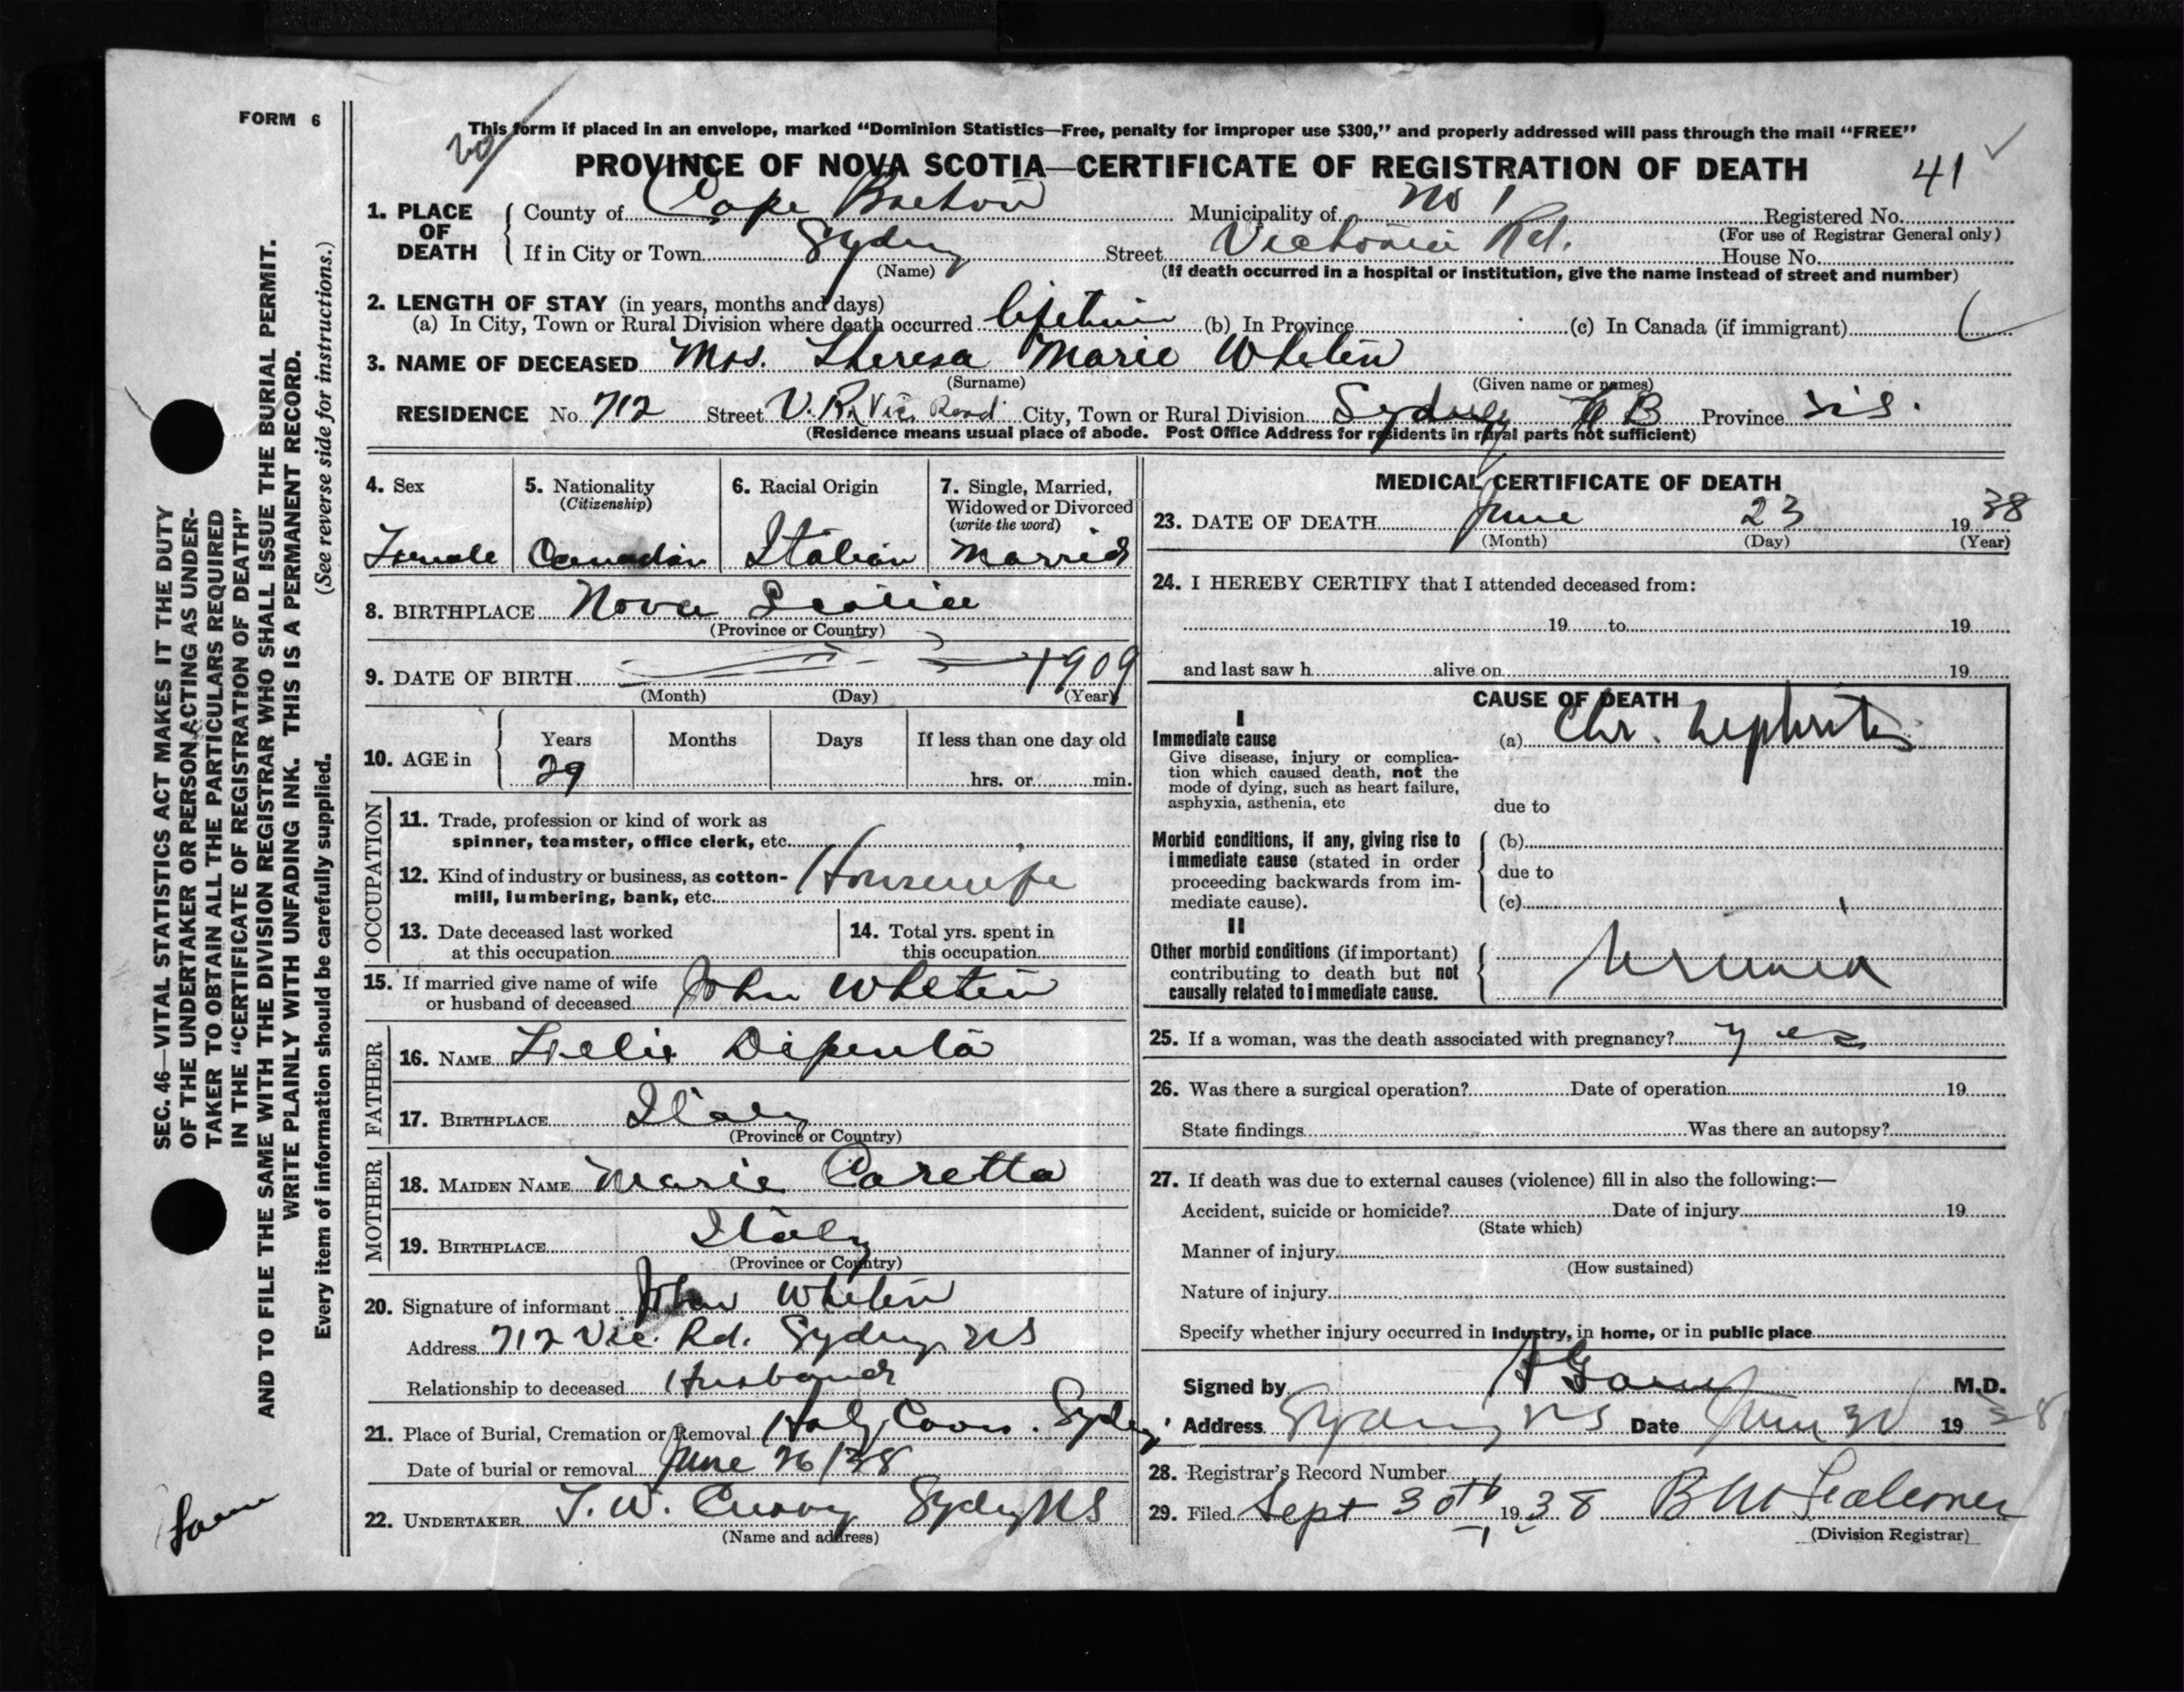 FORM 6
This form if placed in an envelope, marked “Dominion Statistics—Free, penalty for improper use $300,” and properly addressed will pass through the mail “FREE”
PROVINCE OF NOVA SCOTIA—CERTIFICATE OF REGISTRATION OF DEATH 41
1. PLACE OF DEATH County of Cape Breton Municipality of No 1 Registered No.
(For use of Registrar General only)
If in City or Town Sydney Street Victoria Rd. House No.
(Name) (If death occurred in a hospital or institution, give the name instead of street and number)
2. LENGTH OF STAY (in years, months and days)
(a) In City, Town or Rural Division where death occurred lifetime (b) In Province (c) In Canada (if immigrant)
3. NAME OF DECEASED Mrs. Theresa Marie Whelan
(Surname) (Given name or names)
RESIDENCE No. 712 Street V. R. Vic. Road City, Town or Rural Division Sydney C B Province N.S.
(Residence means usual place of abode. Post Office Address for residents in rural parts not sufficient)
4. Sex
Female
5. Nationality
(Citizenship)
Canadian
6. Racial Origin
Italian
7. Single, Married,
Widowed or Divorced
(write the word)
Married
8. BIRTHPLACE Nova Scotia
(Province or Country)
9. DATE OF BIRTH 1909
(Month) (Day) (Year)
10. AGE in Years Months Days If less than one day old
29 hrs. or min.
OCCUPATION
11. Trade, profession or kind of work as
spinner, teamster, office clerk, etc.
12. Kind of industry or business, as cotton-
mill, lumbering, bank, etc. Housewife
13. Date deceased last worked
at this occupation
14. Total yrs. spent in
this occupation
15. If married give name of wife
or husband of deceased John Whelan
FATHER
16. NAME Dipenta
17. BIRTHPLACE Italy
(Province or Country)
MOTHER
18. MAIDEN NAME Marie Caretta
19. BIRTHPLACE Italy
(Province or Country)
20. Signature of informant John Whelan
Address 712 Vic. Rd. Sydney, NS
Relationship to deceased Husband
21. Place of Burial, Cremation or Removal Holy Cross. Sydney
Date of burial or removal June 26/38
22. UNDERTAKER T. W. Curry Sydney NS
(Name and address)
MEDICAL CERTIFICATE OF DEATH
23. DATE OF DEATH June 23 1938
(Month) (Day) (Year)
24. I HEREBY CERTIFY that I attended deceased from:
19 to 19
and last saw h alive on 19
CAUSE OF DEATH
I
Immediate cause
Give disease, injury or complica-
tion which caused death, not the
mode of dying, such as heart failure,
asphyxia, asthenia, etc
(a) Chr. Nephritis
due to
Morbid conditions, if any, giving rise to
immediate cause (stated in order
proceeding backwards from im-
mediate cause).
(b)
due to
(c)
II
Other morbid conditions (if important)
contributing to death but not
causally related to immediate cause.
Uremia
25. If a woman, was the death associated with pregnancy? yes
26. Was there a surgical operation? Date of operation 19
State findings Was there an autopsy?
27. If death was due to external causes (violence) fill in also the following:—
Accident, suicide or homicide? Date of injury 19
(State which)
Manner of injury
(How sustained)
Nature of injury
Specify whether injury occurred in industry, in home, or in public place
Signed by M.D.
Address Sydney NS Date June 30 1938
28. Registrar's Record Number
29. Filed Sept 30th 1938
(Division Registrar)
SEC. 46—VITAL STATISTICS ACT MAKES IT THE DUTY
OF THE UNDERTAKER OR PERSON ACTING AS UNDER-
TAKER TO OBTAIN ALL THE PARTICULARS REQUIRED
IN THE “CERTIFICATE OF REGISTRATION OF DEATH”
AND TO FILE THE SAME WITH THE DIVISION REGISTRAR WHO SHALL ISSUE THE BURIAL PERMIT.
WRITE PLAINLY WITH UNFADING INK. THIS IS A PERMANENT RECORD.
Every item of information should be carefully supplied. (See reverse side for instructions.)